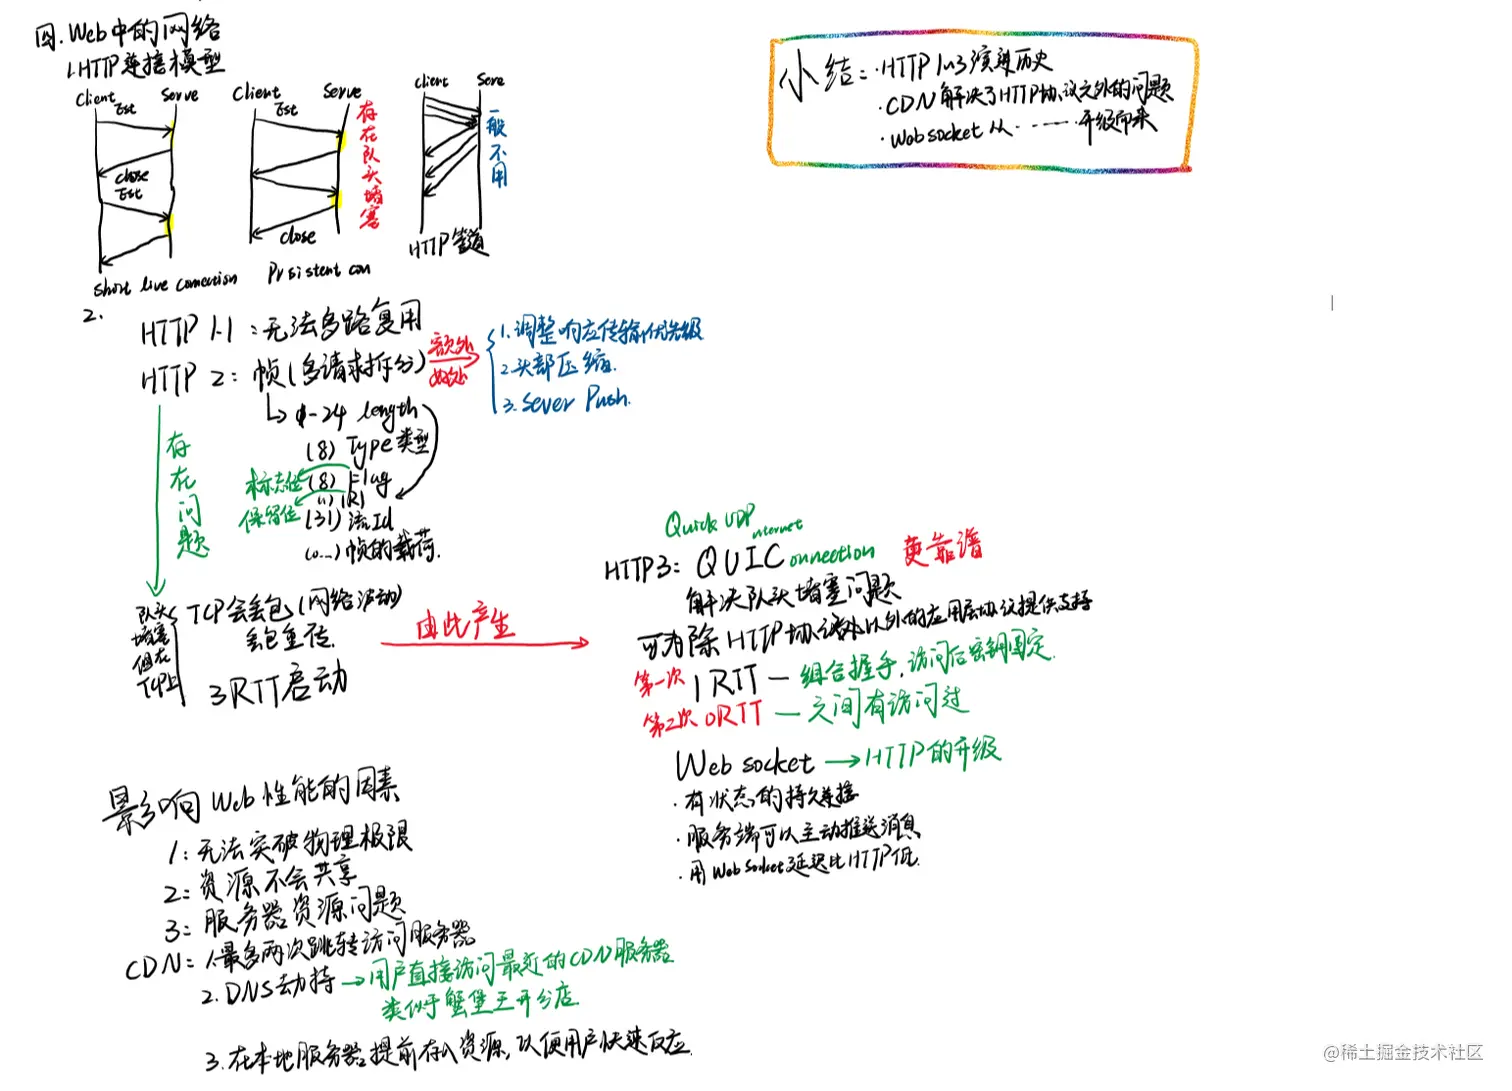 四.Web中的网络
1.HTTP连接模型
Client Serve
Est
close
Est
short live connection
Client Serve
Est
close
Prsistent con
存在队头堵塞
Client Sere
HTTP管道
一般不用
小结:·HTTP 1~3演进历史
·CDN解决了HTTP协议之外的问题
·Websocket从……升级而来
2.
HTTP 1.1:无法多路复用
HTTP 2:帧(多请求拆分)
额外
好处
1.调整响应传输优先级
2.头部压缩
3.Sever Push.
0-24 length
(8) Type类型
(8) Flag
(1) R
(31) 流Id
(0...) 帧的载荷.
标志位
保留位
存在问题
队头堵塞但在TCP上
TCP会丢包(网络波动)
丢包重传.
3RTT启动
由此产生
Quick UDP nternet
HTTP3: QUIC onnection 更靠谱
解决队头堵塞问题
可为除HTTP协议以外的应用层协议提供支持
第一次 1RTT — 组合握手,访问后密钥固定.
第二次 0RTT — 之间有访问过
Web socket → HTTP的升级
·有状态的持久连接
·服务端可以主动推送消息
·用WebSocket延迟比HTTP低.
影响Web性能的因素
1:无法突破物理极限
2:资源不会共享
3:服务器资源问题
CDN:1.最多两次跳转访问服务器
2.DNS劫持 → 用户直接访问最近的CDN服务器
类似于蟹堡王开分店
3.在本地服务器提前存入资源,以便用户快速反应.
@稀土掘金技术社区